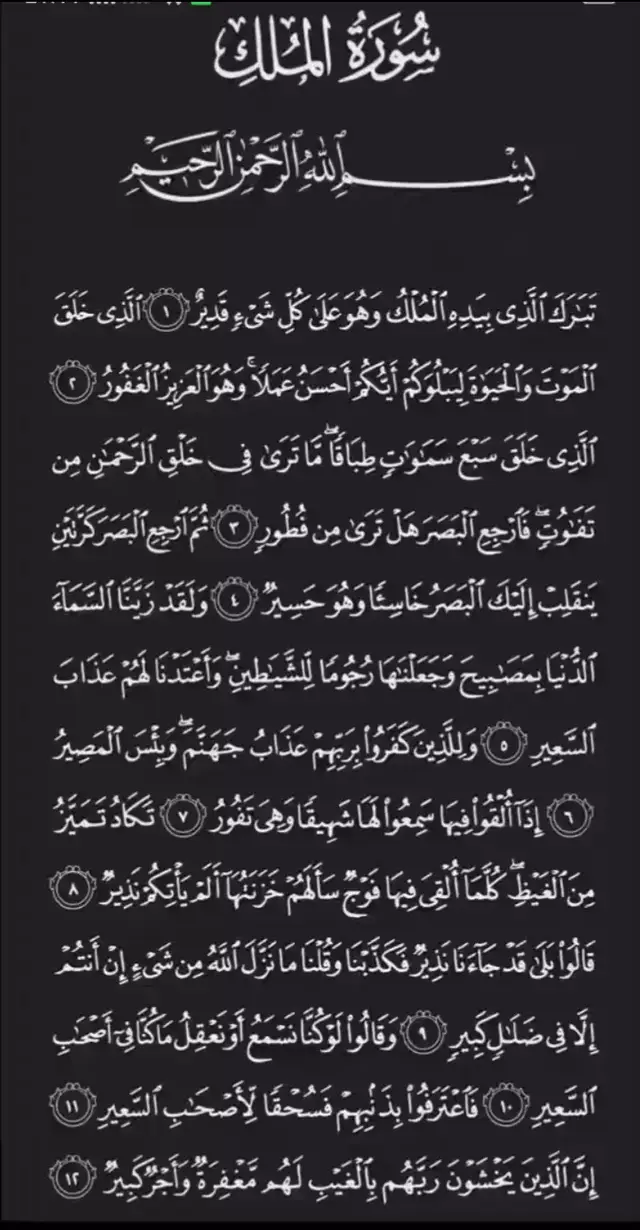 سُورَةُ الْمُلْكِ
بِسْمِ ٱللَّهِ ٱلرَّحْمَٰنِ ٱلرَّحِيمِ
تَبَٰرَكَ ٱلَّذِى بِيَدِهِ ٱلْمُلْكُ وَهُوَ عَلَىٰ كُلِّ شَىْءٍ قَدِيرٌ ١ ٱلَّذِى خَلَقَ
ٱلْمَوْتَ وَٱلْحَيَوٰةَ لِيَبْلُوَكُمْ أَيُّكُمْ أَحْسَنُ عَمَلًا ۚ وَهُوَ ٱلْعَزِيزُ ٱلْغَفُورُ ٢
ٱلَّذِى خَلَقَ سَبْعَ سَمَٰوَٰتٍ طِبَاقًا ۖ مَّا تَرَىٰ فِى خَلْقِ ٱلرَّحْمَٰنِ مِن
تَفَٰوُتٍ ۖ فَٱرْجِعِ ٱلْبَصَرَ هَلْ تَرَىٰ مِن فُطُورٍ ٣ ثُمَّ ٱرْجِعِ ٱلْبَصَرَ كَرَّتَيْنِ
يَنقَلِبْ إِلَيْكَ ٱلْبَصَرُ خَاسِئًا وَهُوَ حَسِيرٌ ٤ وَلَقَدْ زَيَّنَّا ٱلسَّمَآءَ
ٱلدُّنْيَا بِمَصَٰبِيحَ وَجَعَلْنَٰهَا رُجُومًا لِّلشَّيَٰطِينِ ۖ وَأَعْتَدْنَا لَهُمْ عَذَابَ
ٱلسَّعِيرِ ٥ وَلِلَّذِينَ كَفَرُوا۟ بِرَبِّهِمْ عَذَابُ جَهَنَّمَ ۖ وَبِئْسَ ٱلْمَصِيرُ
٦ إِذَآ أُلْقُوا۟ فِيهَا سَمِعُوا۟ لَهَا شَهِيقًا وَهِىَ تَفُورُ ٧ تَكَادُ تَمَيَّزُ
مِنَ ٱلْغَيْظِ ۖ كُلَّمَآ أُلْقِىَ فِيهَا فَوْجٌ سَأَلَهُمْ خَزَنَتُهَآ أَلَمْ يَأْتِكُمْ نَذِيرٌ ٨
قَالُوا۟ بَلَىٰ قَدْ جَآءَنَا نَذِيرٌ فَكَذَّبْنَا وَقُلْنَا مَا نَزَّلَ ٱللَّهُ مِن شَىْءٍ إِنْ أَنتُمْ
إِلَّا فِى ضَلَٰلٍ كَبِيرٍ ٩ وَقَالُوا۟ لَوْ كُنَّا نَسْمَعُ أَوْ نَعْقِلُ مَا كُنَّا فِىٓ أَصْحَٰبِ
ٱلسَّعِيرِ ١٠ فَٱعْتَرَفُوا۟ بِذَنۢبِهِمْ فَسُحْقًا لِّأَصْحَٰبِ ٱلسَّعِيرِ ١١
إِنَّ ٱلَّذِينَ يَخْشَوْنَ رَبَّهُم بِٱلْغَيْبِ لَهُم مَّغْفِرَةٌ وَأَجْرٌ كَبِيرٌ ١٢